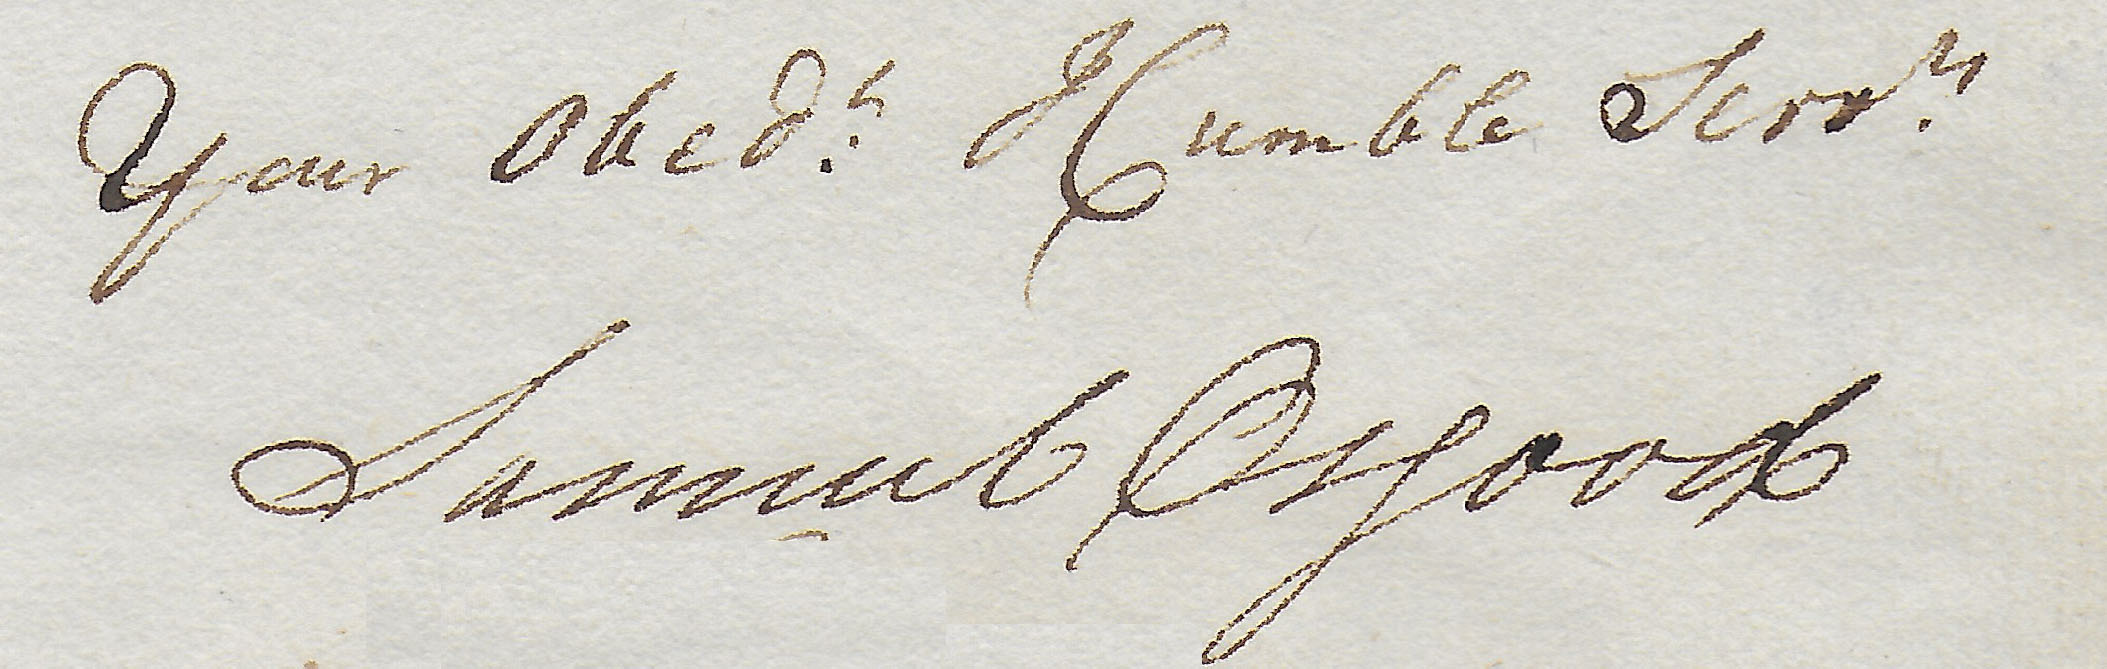 Your Obed.t Humble Serv.t
Samuel Osgood